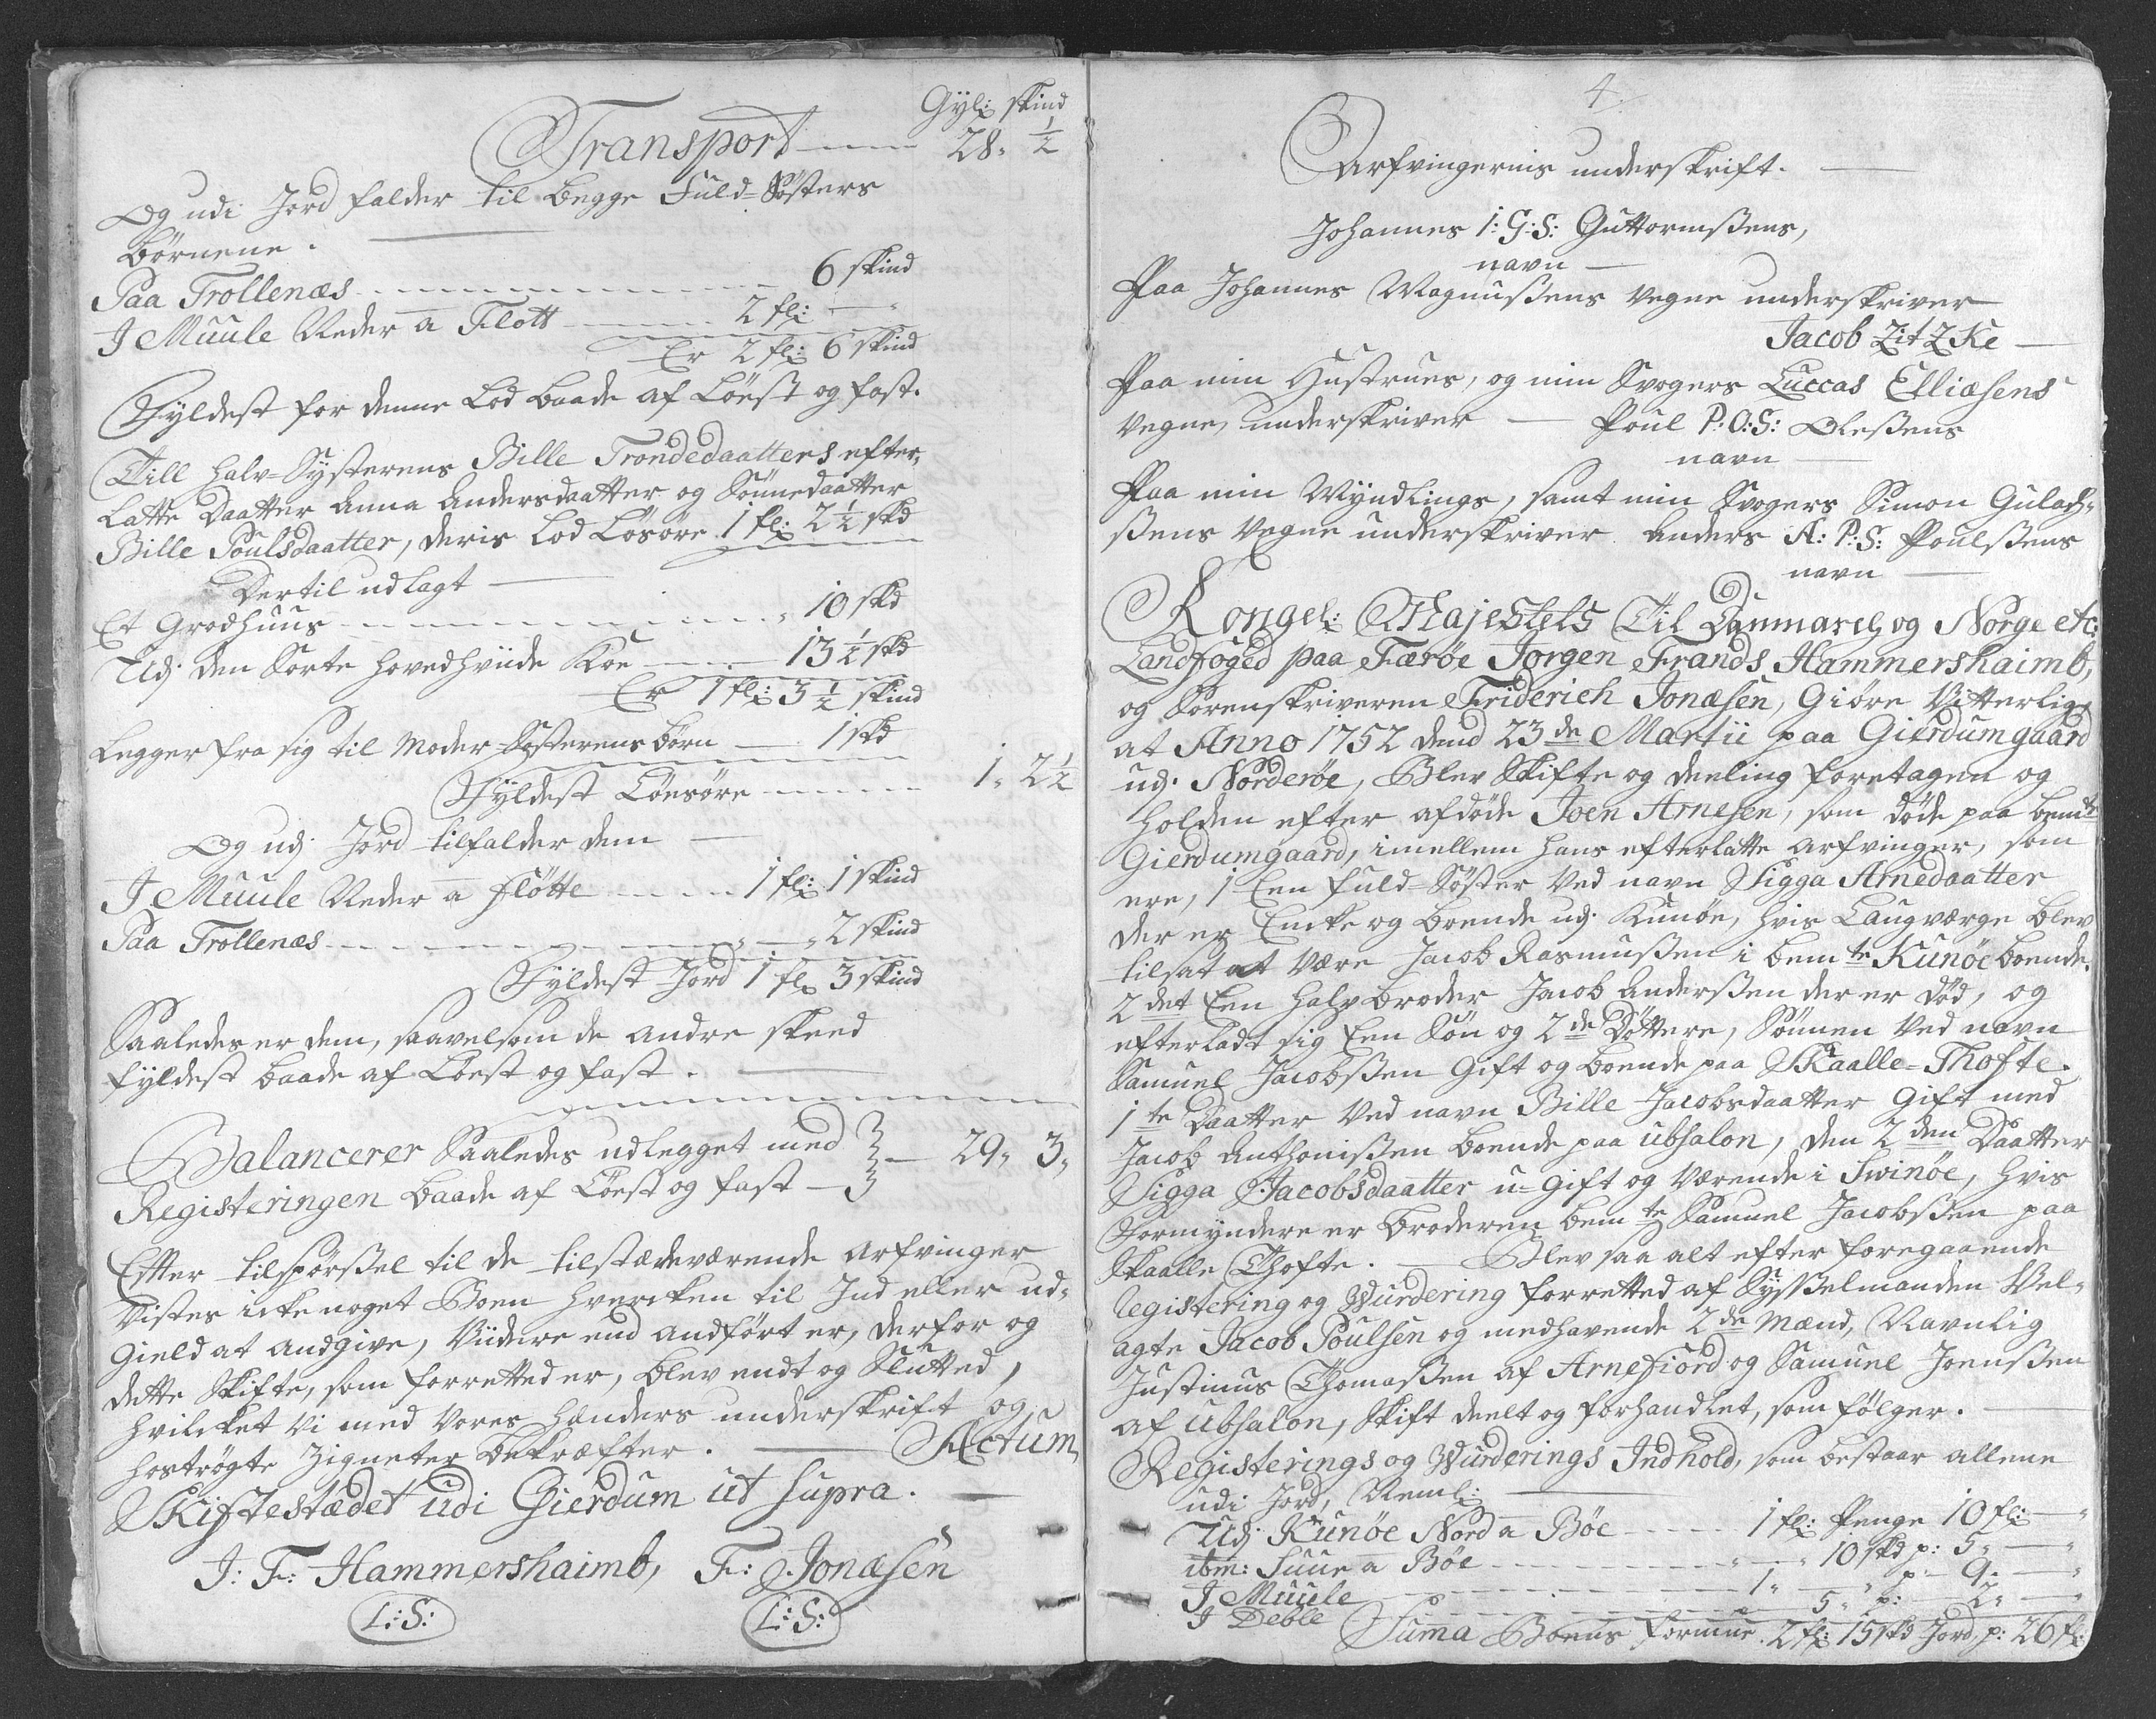 Gyl: skind
Transport 28. ½
Og udi Jord falder til begge Fuld-Søsters
børnene.
Paa Trollenæs 6 skind
J Muule Neder a Flott 2 fl: "
Er 2 fl: 6 skind
Fyldest for denne Lod baade af Löest og fast.
Till halv-Systerens Bille Trondedaatters efter,
latte Daatter Anna Andersdaatter og Sønnedaatter
Bille Poulsdaatter, deris Lod Løsøre 1 fl: 2½ skd
Dertil udlagt
Et Grodhuus " 10 skd
Udj den Sorte hovedhviide Koe 13½ skd
Er 1 fl: 3½ skind
Legger fra sig til Moder-Søsterens børn 1 skd
Fyldest Löesøre 1. 2½
Og udj Jord tilfalder dem
J Muule Neder a flötte 1 fl: 1 skind
Paa Trollenæs " 2 skind
Fyldest Jord 1 fl: 3 skind
Saaledes er dem, saavelsom de andre skeed
fyldest baade af Löest og fast.
Balancerer Saaledes udlegget med
Registeringen baade af Löest og fast 29, 3,
Efter tilspørßel til de tilstædeværende arfvinger
Vistes icke noget Boen hvercken til Ind eller ud-
Gield at andgive, Viidere end andført er, derfor og
dette Skifte, som forretted er, blev endt og Slutted,
hvilcket Vi med Vores hænders underskrift og
hoströgte Zigneter bekræfter. Actum
Skiftestædet udi Gierdum ut supra.
J: F: Hammershaimb, F: Jonæsen
L:S: L:S:
4
Arfvingernis underskrift.
Johannes I:G:S: Guttormßens,
navn
Paa Johannes Magnußens Vegne underskriver
Jacob Zitzke
Paa min Hustrues, og min Svogers Luccas Elliæsens
Vegne, underskriver Poul P:O:S: Oleßens
navn
Paa min Myndlings, samt min Svogers Simon Gulach-
ßens Vegne underskriver Anders A:P:S: Poulßens
navn
Kongel: Majestets Til Danmarch og Norge etc:
Landfoged paa Færøe Jorgen Frands Hammershaimb,
og Sorenskriveren Friderich Jonæsen, Giøre Vitterlig,
at Anno 1752 dend 23de Martii paa Gierdumgaard
udj Norderøe, Blev Skifte og deeling foretagen og
holden efter afdøde Joen Arnesen, som døde paa bemte
Gierdumgaard, imellem hans efterlatte Arfvinger, som
ere, 1 Een fuld-Søster Ved navn Sigga Arnedaatter
der er Encke og boende udj Kunøe, hvis Laugværge blev
tilsat at Være Jacob Rasmußen i bemte Kunøe boende.
2det Een halv broder Jacob Anderßen der er død, og
efterladt sig Een Søn og 2de Döttere, Sønnen Ved navn
Samuel Jacobßen Gift og boende paa Skaalle-Thofte.
1te Daatter Ved navn Bille Jacobsdaatter Gift med
Jacob Anthonißen boende paa ubsalon, den 2den Daatter
Sigga Jacobsdaatter u-gift og Værende i Swinöe, hvis
Formyndere er broderen bemte Samuel Jacobßen paa
Skaalle Thofte. Blev saa alt efter foregaaende
Registering og Wurdering forretted af Sysselmanden Vel-
agte Jacob Poulsen og medhavende 2de Mænd, Navnlig
Justinus Thomaßen af Arnefiord og Samuel Joenßen
af ubsalon, Skift deelt og forhandlet, som følger.
Registerings og Wurderings Indhold, som bestaar allene
udi Jord, Neml:
Udj Kunöe Nord a Böe 1 fl: Penge 10 fl: "
ibm: Suur a Böe " 10 skd p: 5 "
J Muule 1 " p: 9. "
J Deble 5 " p: 2 "
Suma Boens formue 2 fl: 15 skd Jord, p: 26 fl: